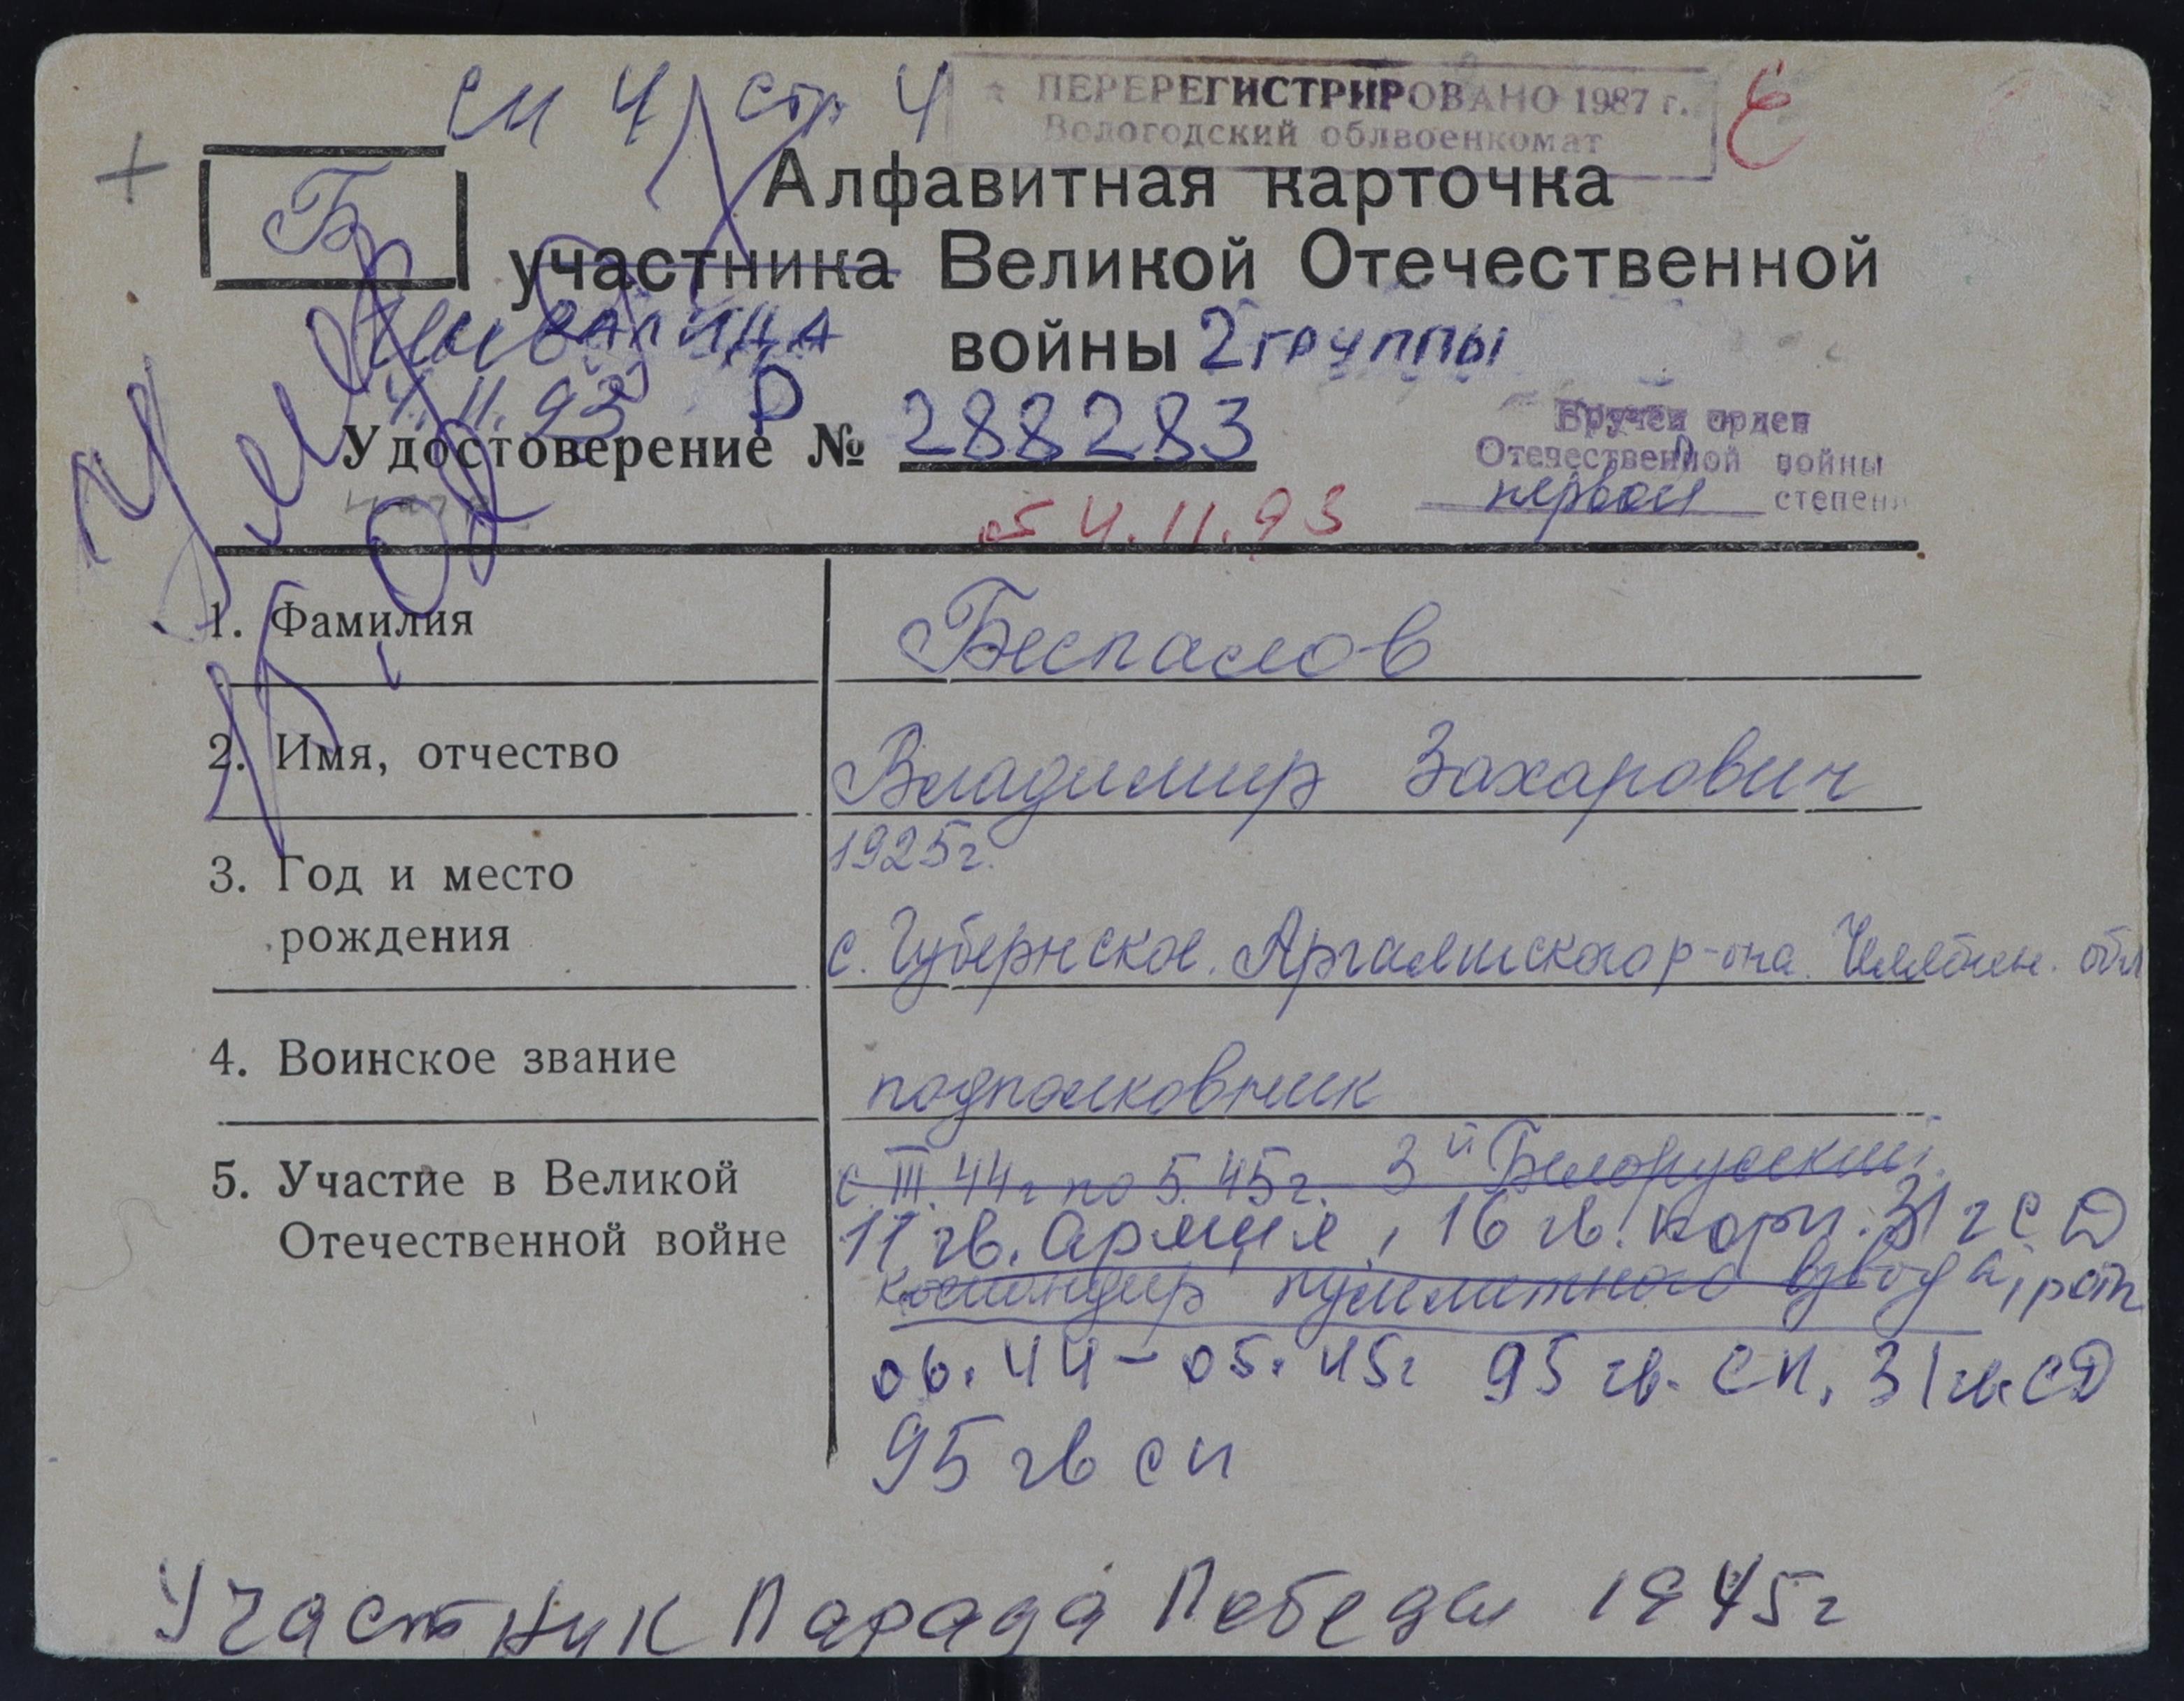 см 4 стр 4
ПЕРЕРЕГИСТРИРОВАНО 1987 г.
Вологодский облвоенкомат
Б
Алфавитная карточка
участника Великой Отечественной
инвалида войны 2 группы
4.11.93 Р
Удостоверение № 288283
Вручен орден
Отечественной войны
первой степени
4.11.93
Умер
1. Фамилия Беспалов
2. Имя, отчество Владимир Захарович
3. Год и место рождения 1925г.
с. Губернское. Аргаяшского р-она. Челябин. обл
4. Воинское звание подполковник
5. Участие в Великой Отечественной войне с III.44г по 5.45г. 3й Белорусский
11 гв. армия, 16 гв. корп. 31 гСД
командир пулеметного взвода, рот
06.44-05.45г 95 гв. сп. 31 гв. СД
95 гв сп
Участник Парада Победы 1945г